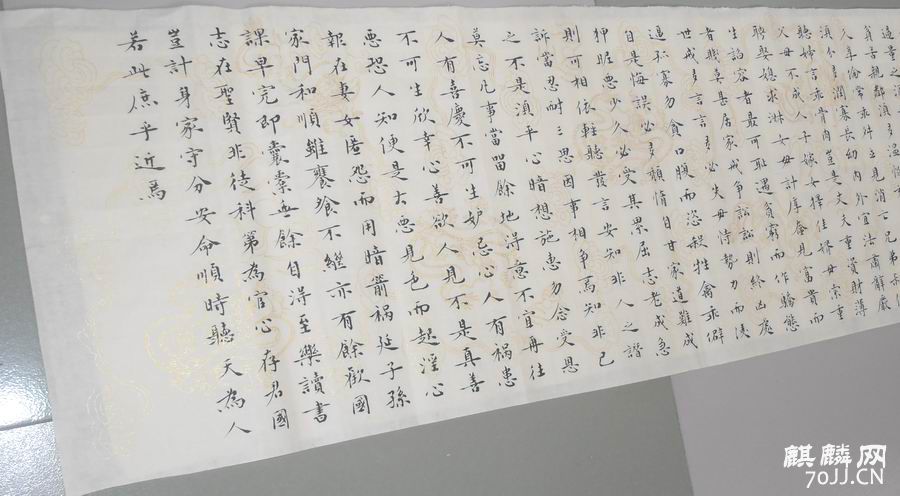 貧苦親鄰須多溫恤
久享倫常乖舛立見消亡兄弟叔侄
須分多潤寡長幼內外宜法肅辭嚴
聽婦言乖骨肉豈是丈夫重資財薄
父母不成人子嫁女擇佳婿毋索重
聘娶媳求淑女毋計厚奩見富貴而
生諂容者最可恥遇貧窮而作驕態
者賤莫甚居家戒爭訟訟則終凶處
世戒多言言多必失毋恃勢力而凌
逼孤寡勿貪口腹而恣殺牲禽乖僻
自是悔誤必多頹惰自甘家道難成
狎昵惡少久必受其累屈志老成急
則可相依輕聽發言安知非人之譖
訴當忍耐三思因事相爭焉知非己
之不是須平心暗想施惠勿念受恩
莫忘凡事當留餘地得意不宜再往
人有喜慶不可生妒忌心人有禍患
不可生欣幸心善欲人見不是真善
惡恐人知便是大惡見色而起淫心
報在妻女匿怨而用暗箭禍延子孫
家門和順雖饔飧不繼亦有餘歡國
課早完即囊橐無餘自得至樂讀書
志在聖賢非徒科第為官心存君國
豈計身家守分安命順時聽天為人
若此庶乎近焉
麒麟网
70JJ.CN